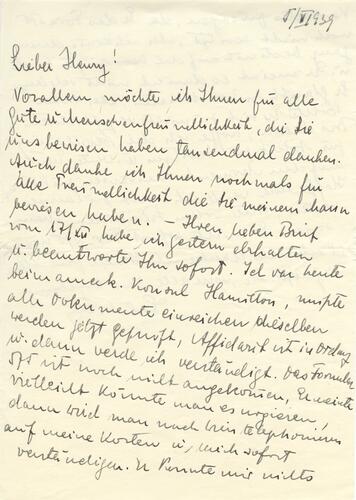 5/VI 1939
Lieber Henry!
Vorallem möchte ich Ihnen für alle
Güte u Menschenfreundlichkeit, die Sie
uns bewisen haben tausendmal danken.
Auch danke ich Ihnen nochmals für
alle Freundlichkeit die Sie meinem Mann
bewisen haben. – Ihren lieben Brief
vom 17/XII habe ich gestern erhalten
u. beantworte Ihn sofort. Ich war heute
beim amerk. Konsul Hamilton, mußte
alle Dokumente einreichen dieselben
werden jetzt geprüft, Affidavit ist in Ordng
u. dann werde ich verständigt. Das Formular
ist noch nicht angekommen, Er meinte
vielleicht könnte man es urgieren,
dann wird man nach telephonieren
auf meine Kosten u, mich sofort
verständigen. Er konnte mir nichts